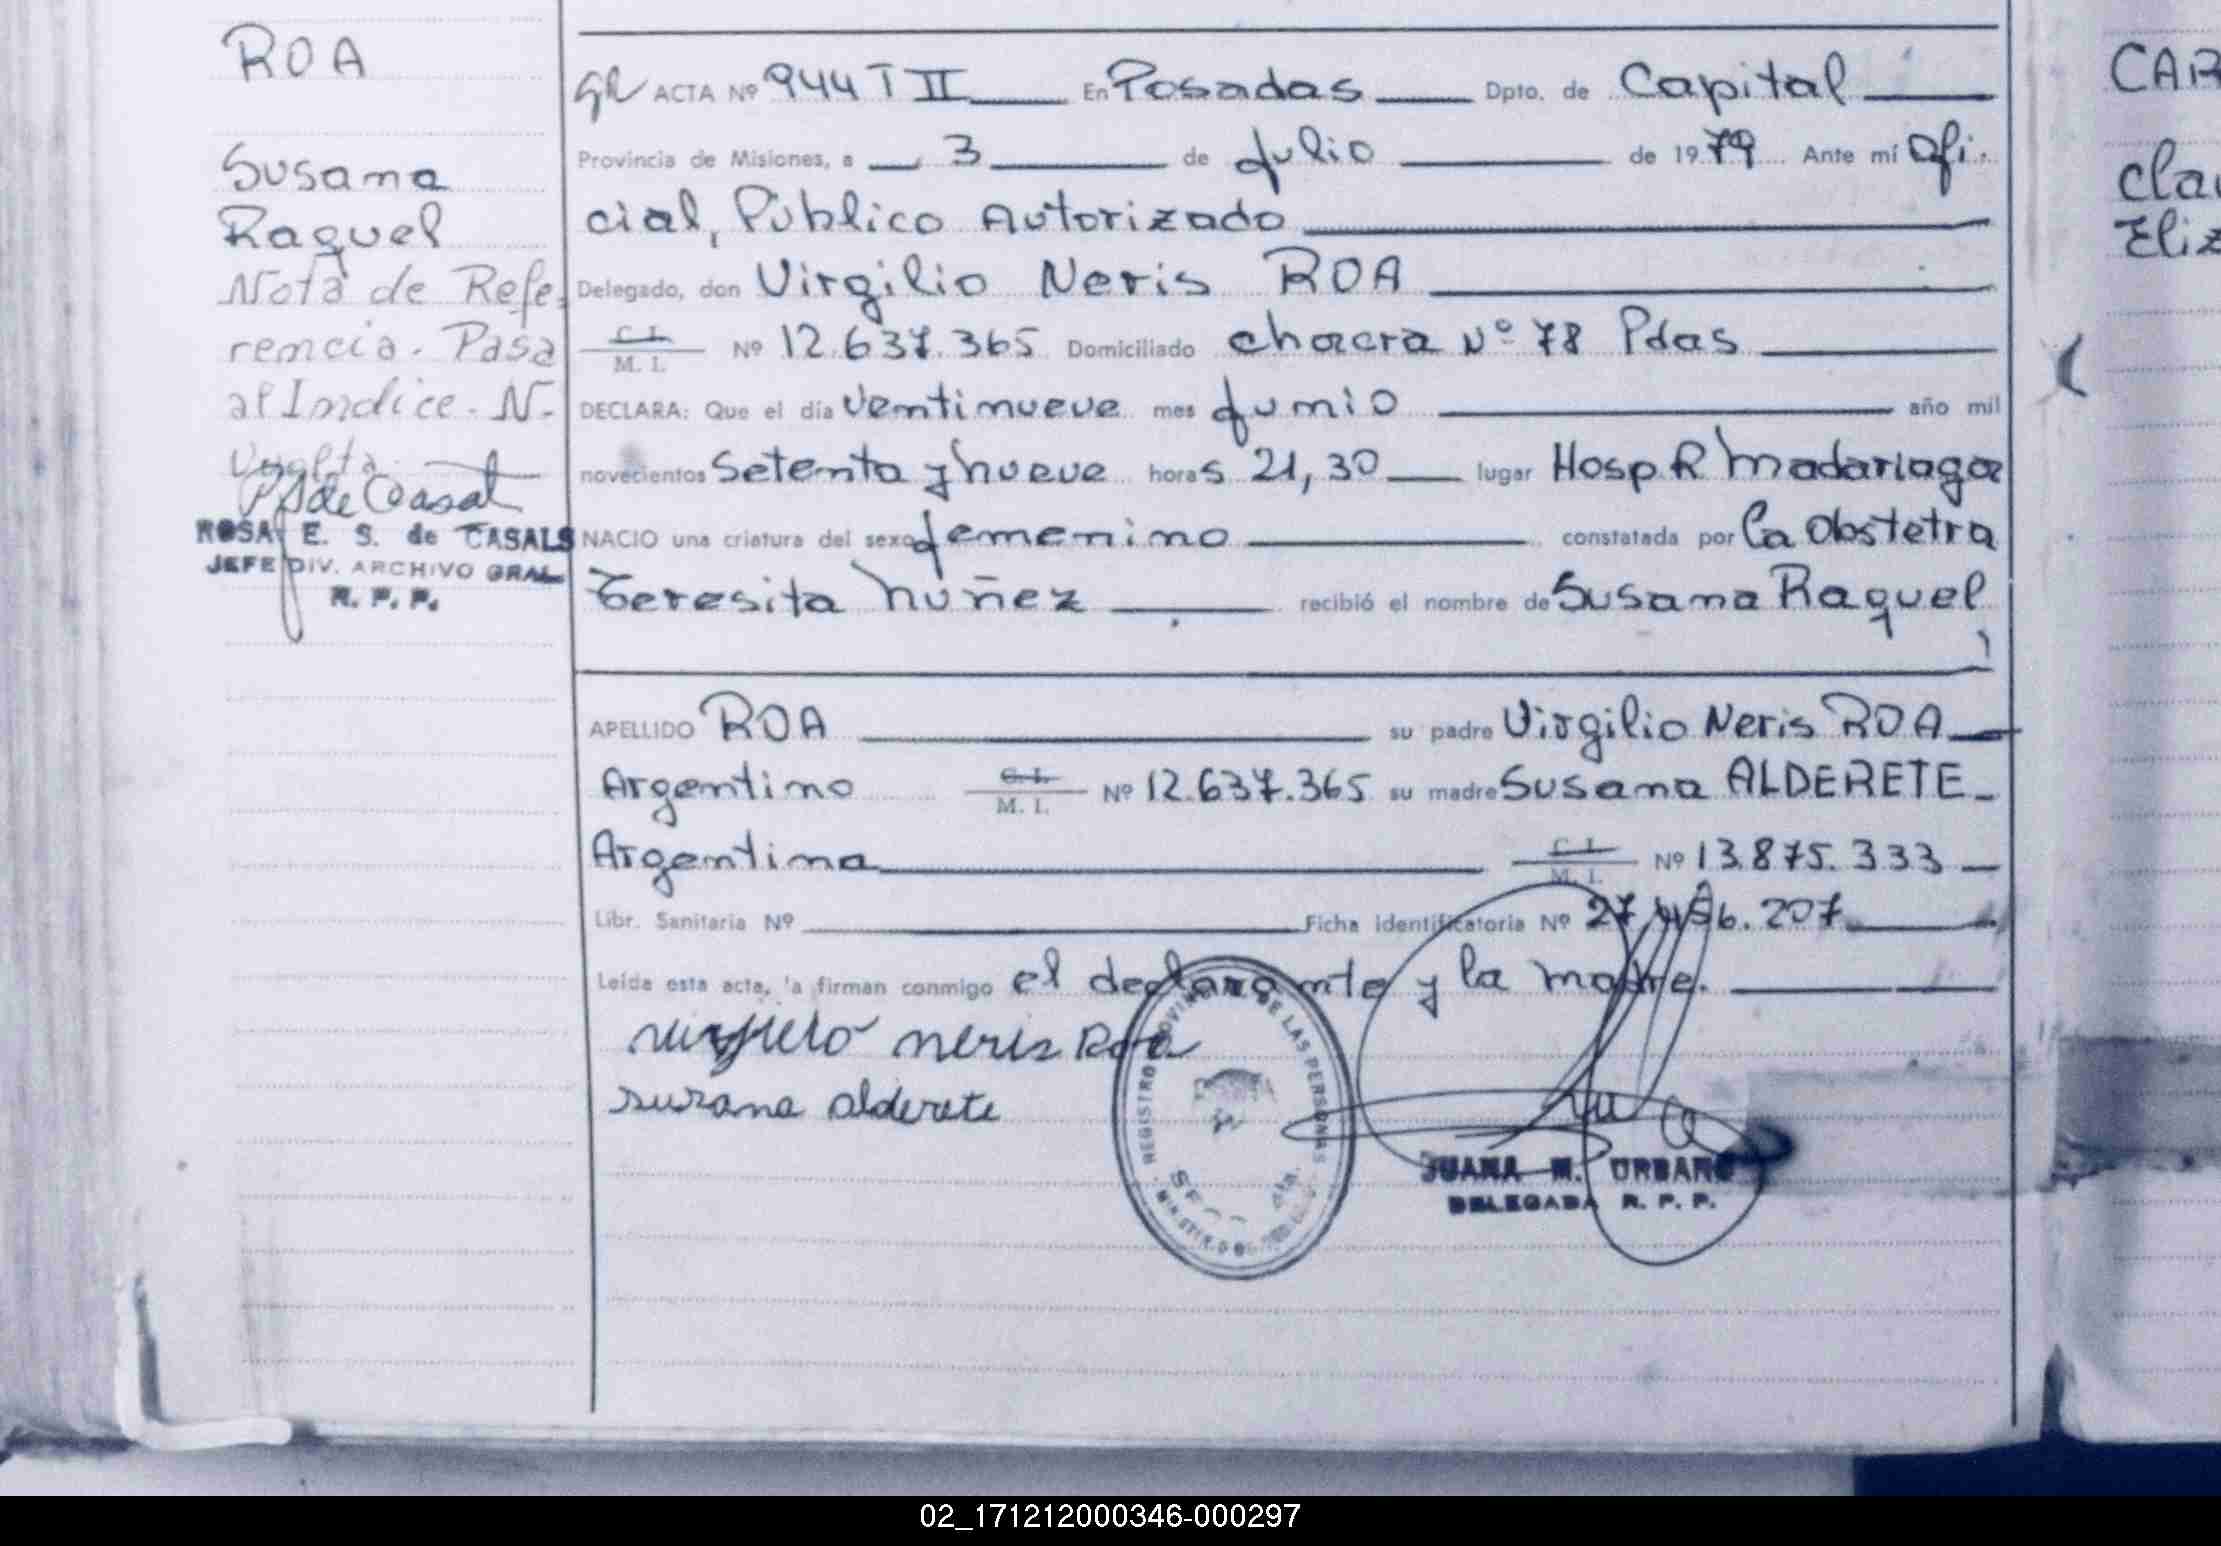 ROA
Susana
Raquel
Nota de Refe-
rencia. Pasa
al Indice. N.
Vuelta.
ROSA E. S. de CASALS
JEFE DIV. ARCHIVO GRAL
R. P. P.
ACTA Nº 944 T II En Posadas Dpto. de Capital
Provincia de Misiones, a 3 de Julio de 1979 Ante mí Ofi-
cial, Público Autorizado
Delegado, don Virgilio Neris ROA
C. I. M. I. Nº 12.637.365 Domiciliado chacra Nº 78 Pdas
DECLARA: Que el día ventinueve mes Junio año mil
novecientos Setenta y nueve horas 21,30 lugar Hosp R Madariaga
NACIO una criatura del sexo femenino constatada por la Obstetra
Teresita Nuñez recibió el nombre de Susana Raquel
APELLIDO ROA su padre Virgilio Neris ROA
Argentino C. I. M. I. Nº 12.637.365 su madre Susana ALDERETE
Argentina C. I. M. I. Nº 13.875.333
Libr. Sanitaria Nº Ficha identificatoria Nº 27.496.207
Leída esta acta, la firman conmigo el declarante y la madre.
virgilio neris Roa
susana alderete
REGISTRO PROVINCIAL DE LAS PERSONAS
JUANA M. URBANO
DELEGADA R. P. P.
CAB
Cla
Eliz
02_171212000346-000297